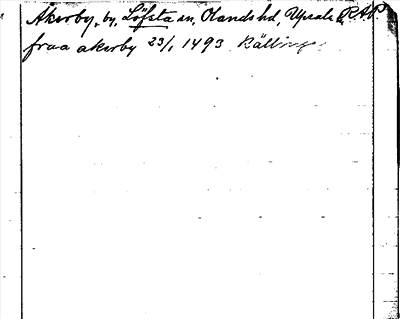 Åkerby, by, Löfsta sn, Olands hd, Upsala l. RAP.
fraa akerby 23/1 1493 Källinge